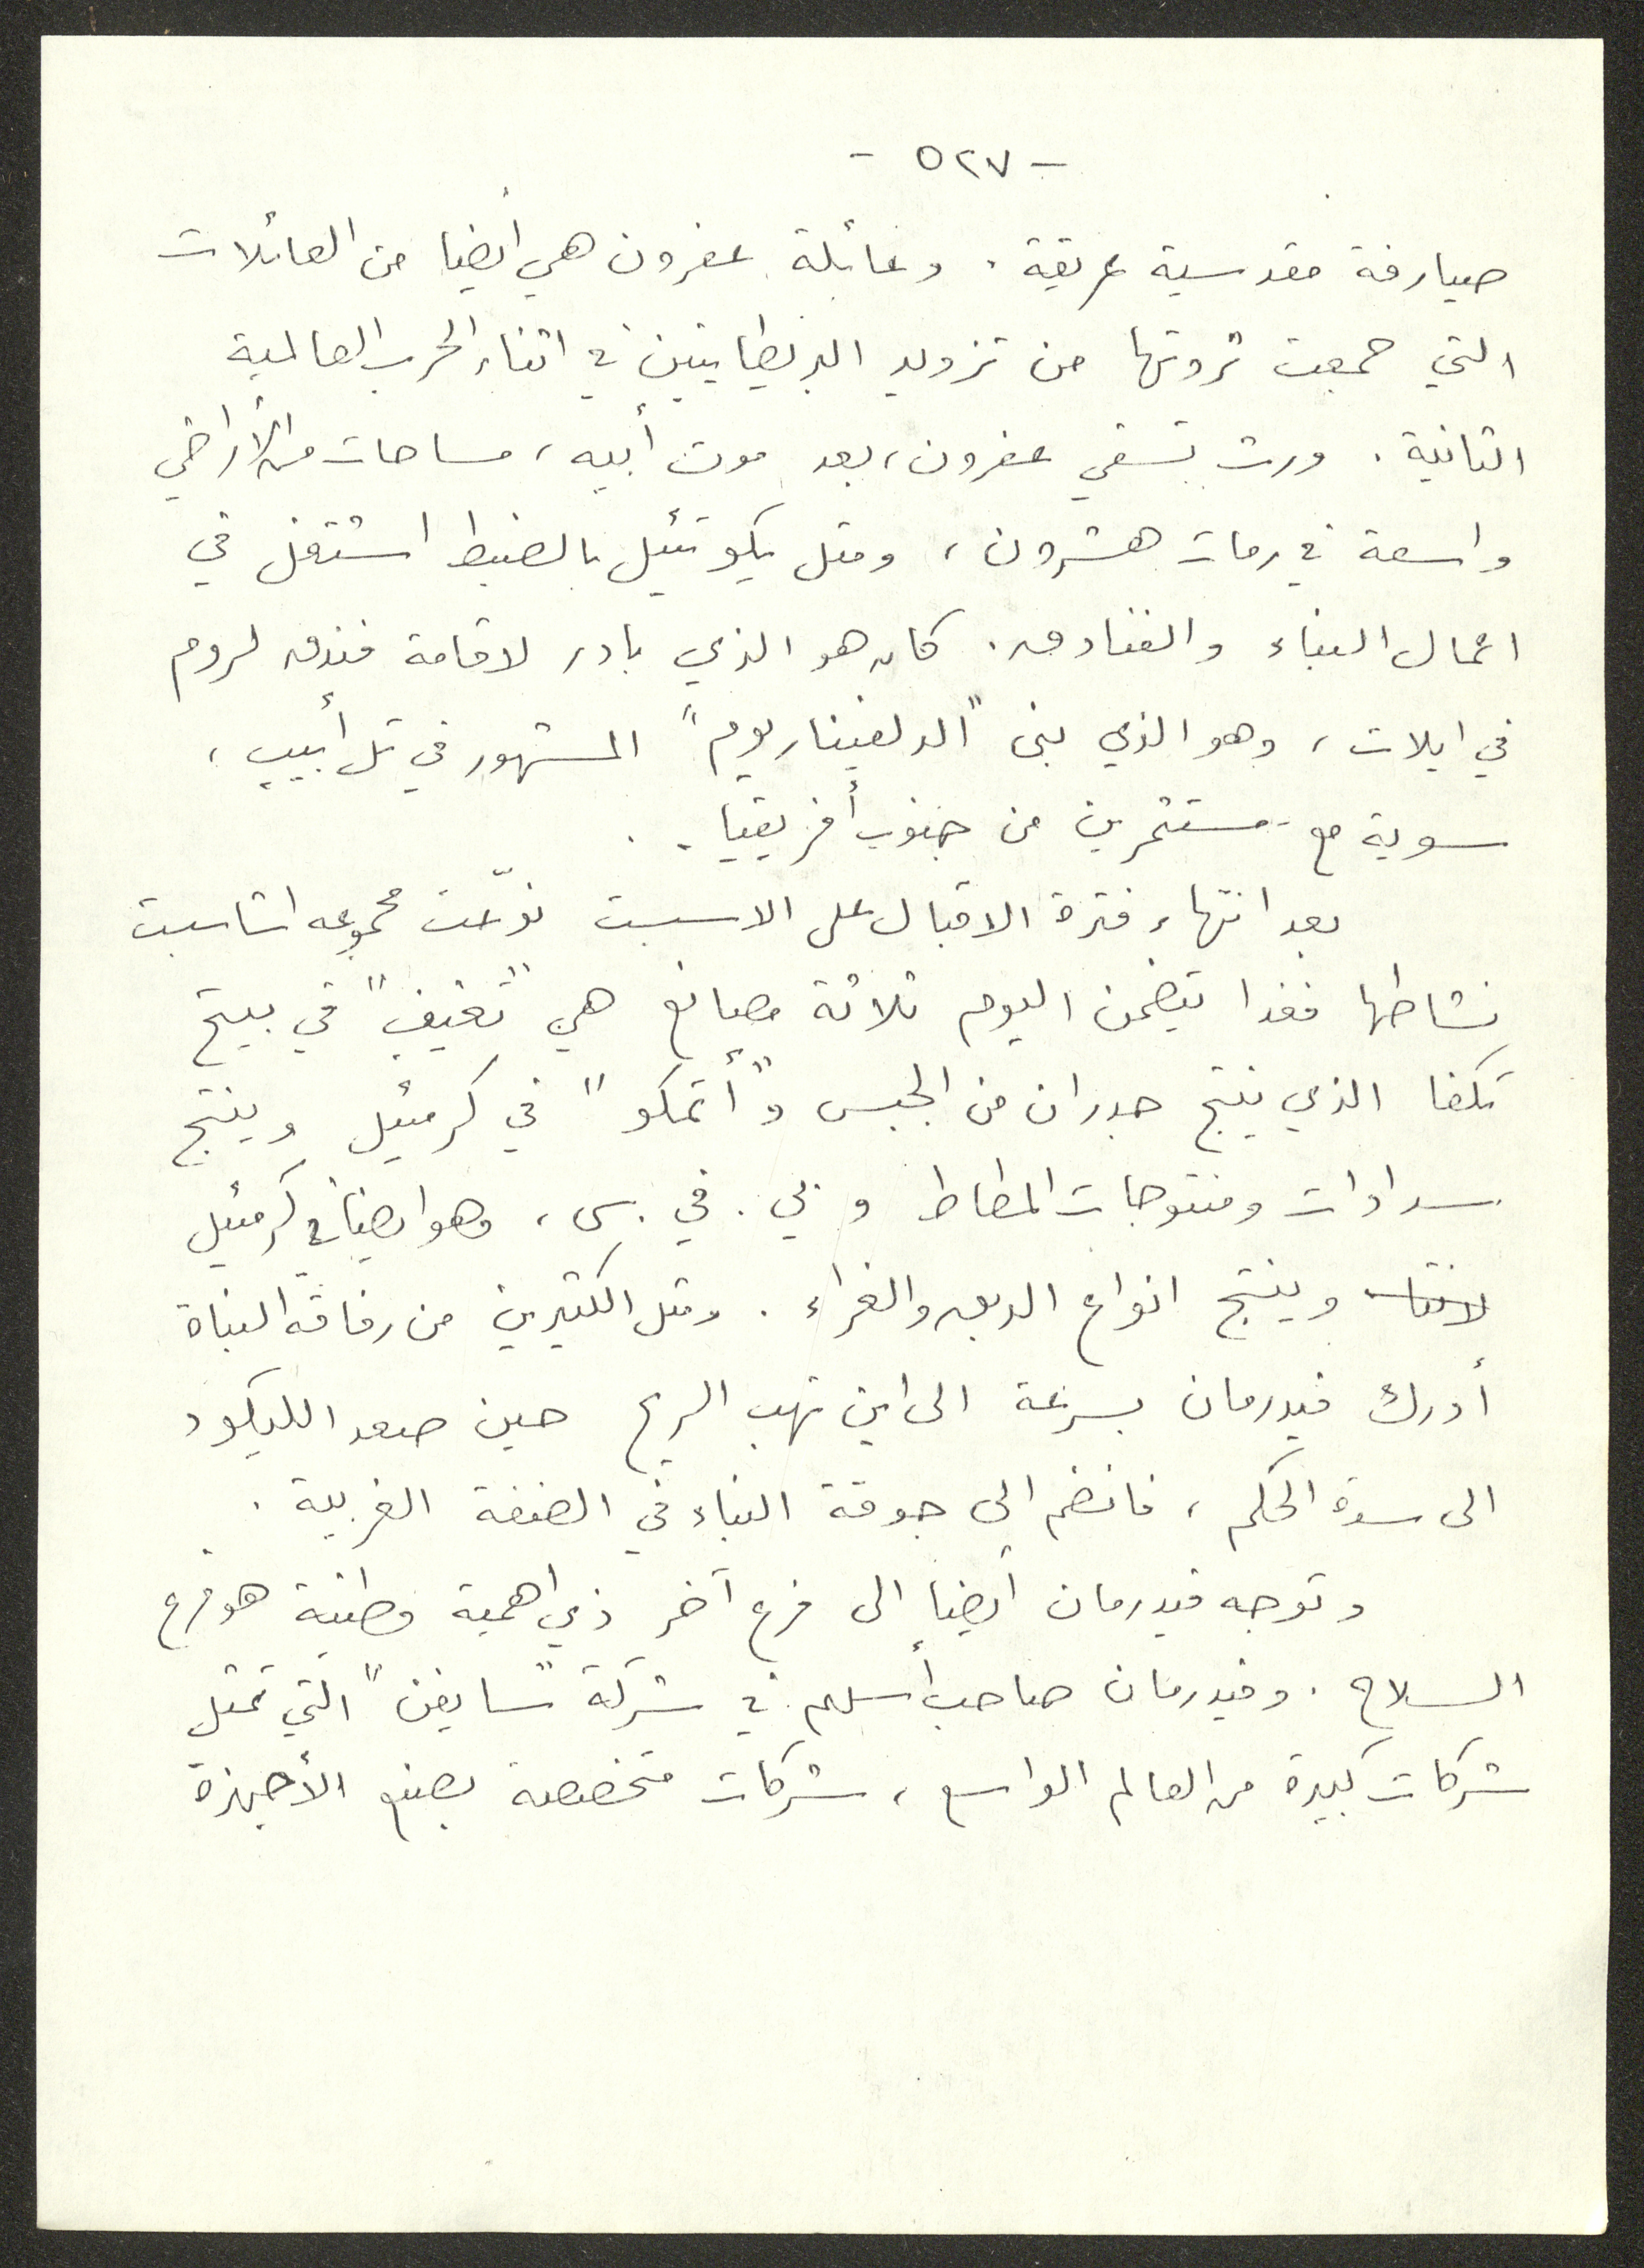 - ٥٢٧ -
صيارفة مقدسية عريقة. وعائلة عفرون هي أيضا من العائلات
التي جمعت ثروتها من تزويد البريطانيين في اثناء الحرب العالمية
الثانية. ورث تسفي عفرون، بعد موت أبيه، مساحات من الأراضي
واسعة في رمات هشرون، ومثل يكوتئيل بالضبط اشتغل في
اعمال البناء والفنادق. كان هو الذي بادر لاقامة فندق لروم
في ايلات، وهو الذي بنى "الدلفيناريوم" المشهور في تل أبيب،
سوية مع مستثمرين من جنوب أفريقيا.
بعد انتهاء فترة الاقبال على الاسبست نوّعت مجموعه اشاسبت
نشاطها فغدا يتضمن اليوم ثلاثة مصانع هي "تعفيف" في بيتح
تكفا الذي ينتج جدران من الجبس و"أتمكو" في كرمئيل وينتج
سدادات ومنتوجات المطاط و بي. في. سي، وهو ايضا في كرمئيل
وينتج انواع الدبق والغراء. ومثل الكثيرين من رفاقه البناة
أدرك فيدرمان بسرعة الى اين تهب الريح حين صعد الليكود
الى سدة الحكم، فانضم الى جوقة البناء في الضفة الغربية.
وتوجه فيدرمان أيضا الى فرع آخر ذي اهمية وطنية هو فرع
السلاح. وفيدرمان صاحب أسهم في شركة "سايفن" التي تمثل
شركات كبيرة من العالم الواسع، شركات متخصصة بصنع الأجهزة